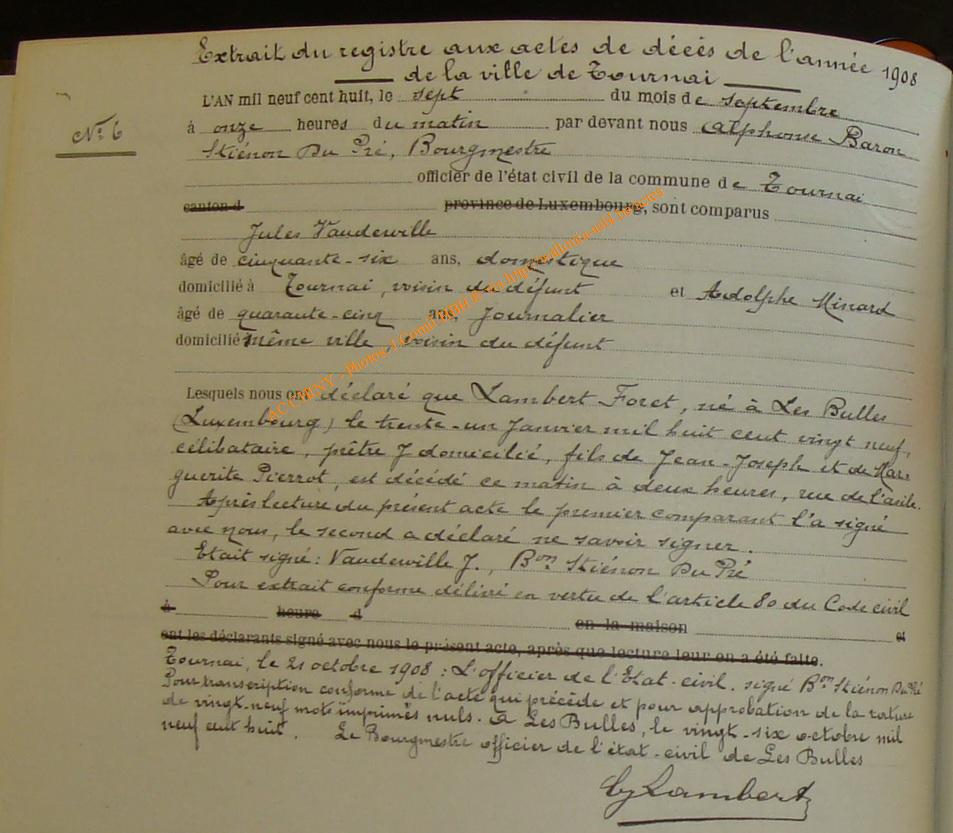 Extrait du registre aux actes de décès de l'année 1908
de la ville de Tournai
N° 6
L'AN mil neuf cent huit, le sept du mois de septembre
à onze heures du matin par devant nous Alphonse Baron
Stiénon Du Pré, Bourgmestre
officier de l'état civil de la commune de Tournai
canton d province de Luxembourg, sont comparus
Jules Vaudewille
âgé de cinquante-six ans, domestique
domicilié à Tournai, voisin du défunt et Adolphe Minard
âgé de quarante-cinq ans, Journalier
domicilié même ville, voisin du défunt
Lesquels nous ont déclaré que Lambert Foret, né à Les Bulles
(Luxembourg) le trente-un Janvier mil huit cent vingt neuf,
célibataire, prêtre J domicilié, fils de Jean-Joseph et de Mar-
guerite Pierrot, est décédé ce matin à deux heures, rue de l'asile.
Après lecture du présent acte le premier comparant l'a signé
avec nous, le second a déclaré ne savoir signer.
Etait signé: Vaudewille J., Bon Stiénon Du Pré
Pour extrait conforme délivré en vertu de l'article 80 du Code civil
à heure d en la maison et
ont les déclarants signé avec nous le présent acte, après que lecture leur en a été faite.
Tournai, le 21 octobre 1908: L'officier de l'Etat-civil. signé Bon Stiénon Du Pré
Pour transcription conforme de l'acte qui précède et pour approbation de la rature
de vingt-neuf mots imprimés nuls. A Les Bulles, le vingt-six octobre mil
neuf cent huit. Le Bourgmestre officier de l'état-civil de Les Bulles
Lambert